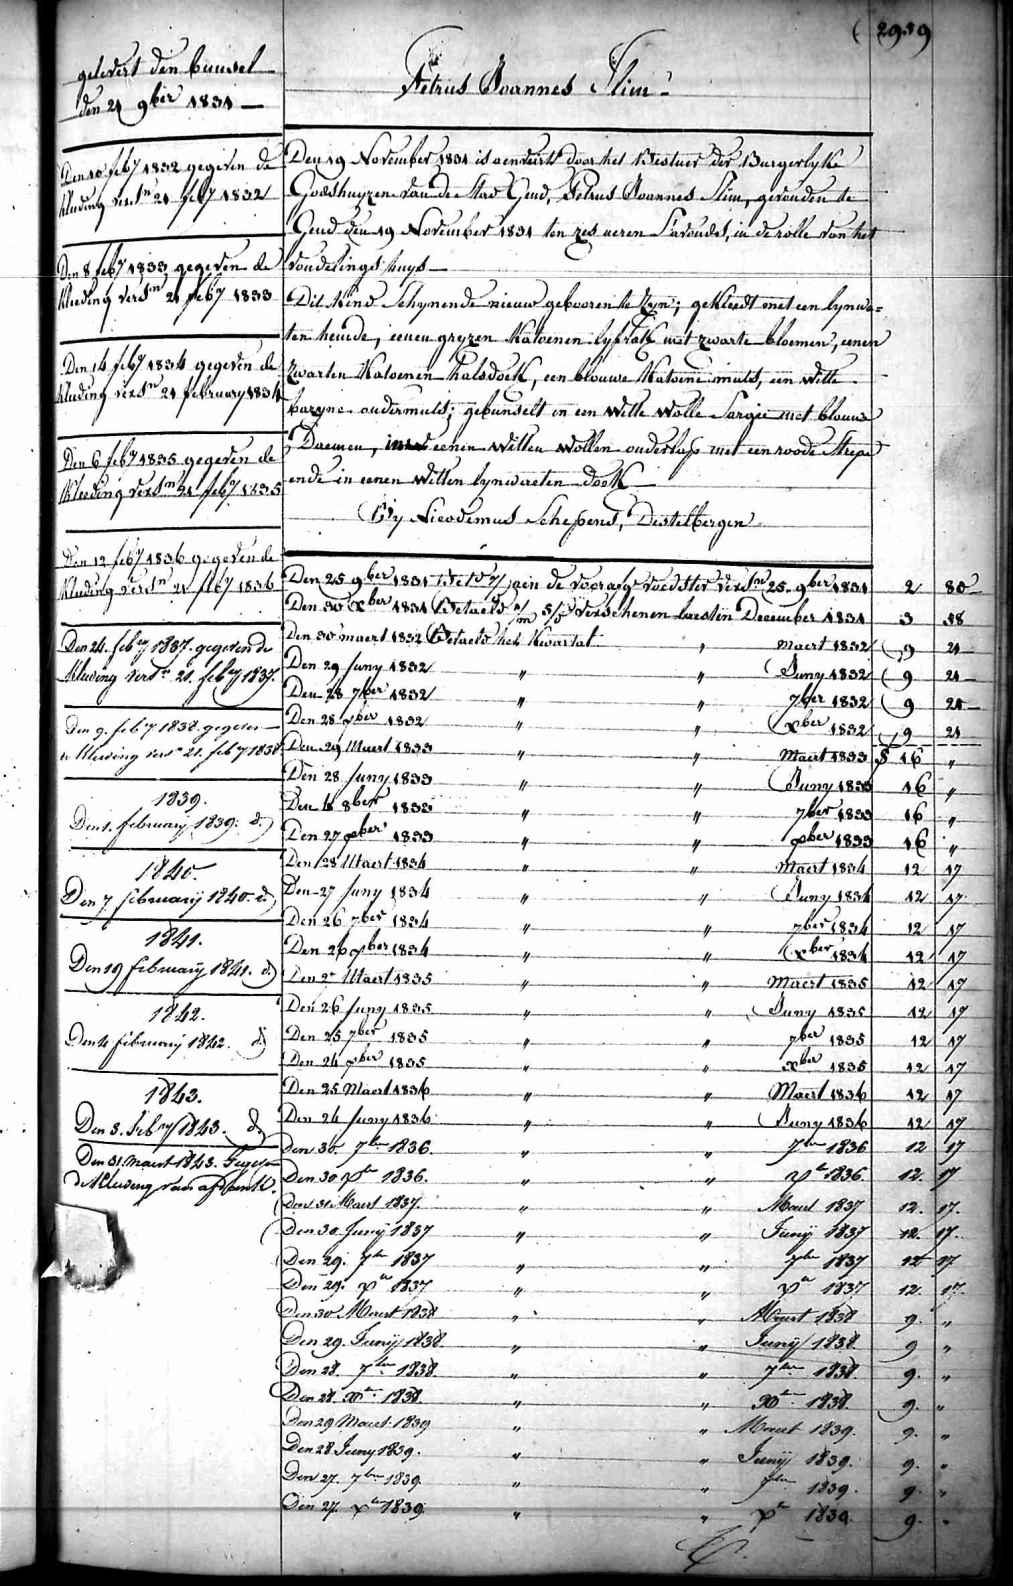 (2919
Petrus Joannes Slim
gelevert den bunsel
den 21 9ber 1831
Den 10 feby 1832 gegeven de
kleeding versn 21 feby 1832
Den 8 feby 1833 gegeven de
kleeding versn 21 feby 1833
Den 14 feby 1834 gegeven de
kleeding versn 21 february 1834
Den 6 feby 1835 gegeven de
kleeding versn 21 feby 1835
Den 12 feby 1836 gegeven de
kleeding versn 21 feby 1836
Den 24. febry 1837. gegeven de
kleeding versn 21. febry 1837.
den 9. feby 1838. gegeven
kleeding versn 21. feby 1838
1839.
Den 1. february 1839. d.)
1840.
Den 7 february 1840. d)
1841.
Den 19 february 1841. d)
1842.
Den 4 february 1842. d)
1843.
Den 3. feby 1843. d.)
Den 31 maert 1843. Gegeven
de kleeding van afkomst.
Den 19 November 1831 is aenveirt door het Bestuer der Burgerlyke
Godshuyzen van de Stad Gend, Petrus Joannes Slim, gevonden te
Gend den 19 November 1831 ten zes ueren s'avonds, in de rolle van het
vondelings huys
Dit kind schynende nieuw gebooren te zyn; gekleedt met een lynwa=
ten hemde, eenen gryzen katoenen lyfrok met zwarte bloemen, eenen
zwarten katoenen halsdoek, een blouwe katoene muts, een witte
bazyne ondermuts; gebunselt in een witte wolle sargie met blouwe
Daemen, eenen witten wollen onderlap met een roode strepe
ende in eenen witten lynwaeten doek
By Nicodemus Schepens, Destelbergen
Den 25 9ber 1831 aen de voorafge voedster versn 25. 9ber 1831 2 80
Den 30 Xber 1831 Betaeld verschenen laesten December 1831 3 18
Den 30 maert 1832 Betaeld het kwartal " maert 1832 9 21
Den 29 Juny 1832 " " Juny 1832 9 21
Den 28 7ber 1832 " " 7ber 1832 9 21
Den 28 Xber 1832 " " Xber 1832 9 21
Den 29 Maert 1833 " " Maert 1833 16 "
Den 28 Juny 1833 " " Juny 1833 16 "
Den 4 8ber 1833 " " 7ber 1833 16 "
Den 27 Xber 1833 " " Xber 1833 16 "
Den 28 Maert 1834 " " Maert 1834 12 17
Den 27 Juny 1834 " " Juny 1834 12 17
Den 26 7ber 1834 " " 7ber 1834 12 17
Den 26 Xber 1834 " " Xber 1834 12 17
Den 2 Maert 1835 " " Maert 1835 12 17
Den 26 Juny 1835 " " Juny 1835 12 17
Den 25 7ber 1835 " " 7ber 1835 12 17
Den 24 Xber 1835 " " Xber 1835 12 17
Den 25 Maert 1836 " " Maert 1836 12 17
Den 24 Juny 1836 " " Juny 1836 12 17
Den 30. 7ber 1836. " " 7ber 1836 12 17
Den 30 Xber 1836. " " Xber 1836. 12. 17
Den 31 Maert 1837. " " Maert 1837 12. 17.
Den 30. Juny 1837 " " Juny 1837 12. 17.
Den 29. 7ber 1837 " " 7ber 1837 12 17.
Den 29. Xber 1837 " " Xber 1837 12. 17.
Den 30 Maert 1838 " " Maert 1838 9. "
Den 29. Juny 1838. " " Juny 1838. 9 "
Den 28. 7ber 1838. " " 7ber 1838. 9. "
Den 28. Xber 1838. " " Xber 1838. 9. "
Den 29 Maert 1839 " " Maert 1839. 9. "
Den 28 Juny 1839. " " Juny 1839. 9. "
Den 27. 7ber 1839. " " 7ber 1839. 9. "
Den 27. Xber 1839 " " Xber 1839. 9. "